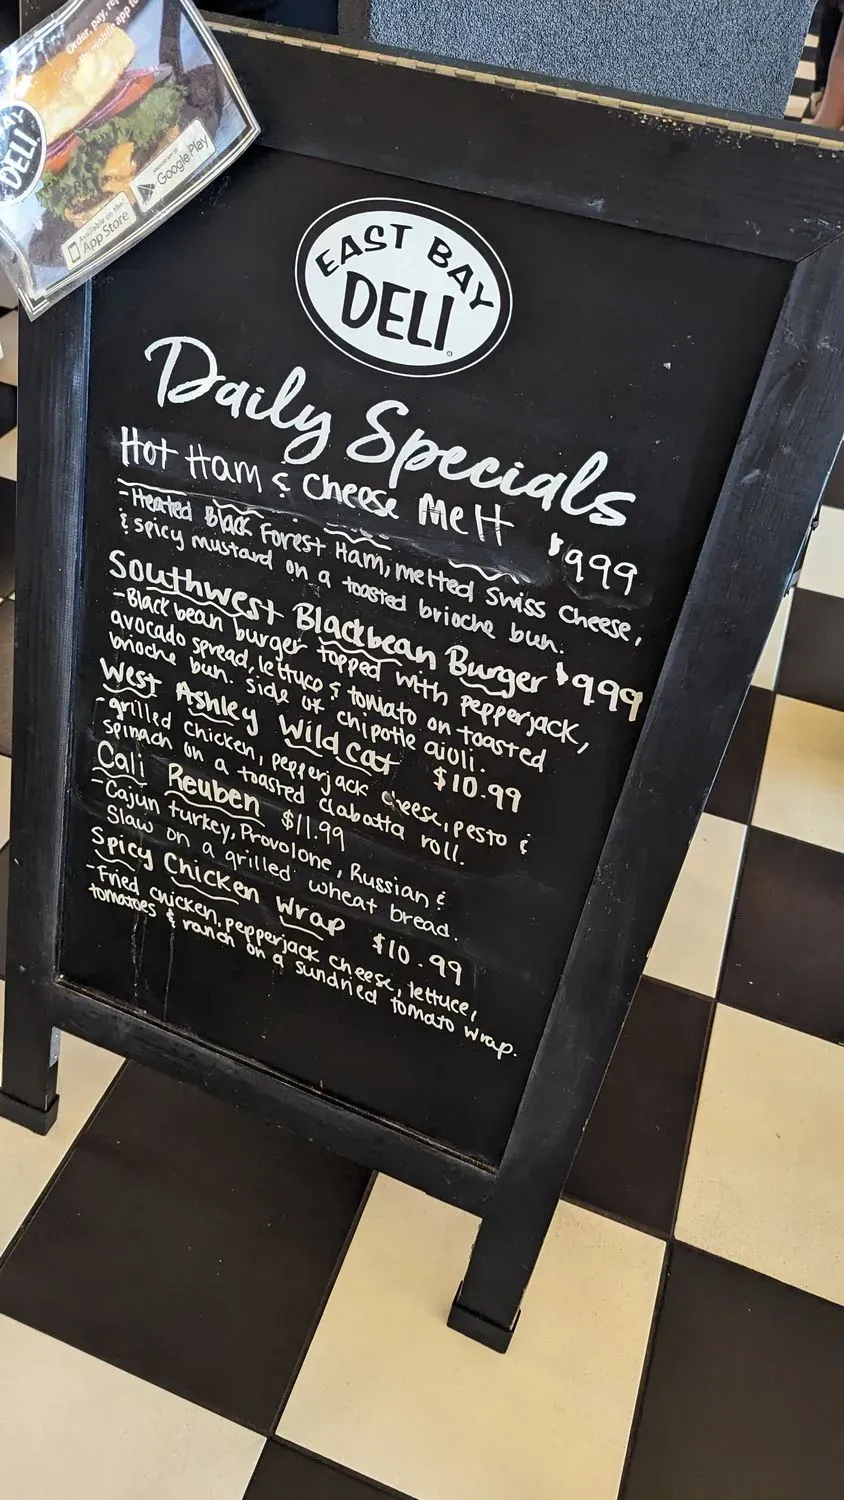 Order, pay, re
mobile app to
BAY
DELI
Available on the
App Store
Google Play
EAST BAY
DELI
Daily Specials
Hot Ham & Cheese Melt $9.99
- Heated Black Forest Ham, melted Swiss cheese,
& spicy mustard on a toasted brioche bun.
Southwest Blackbean Burger $9.99
- Black bean burger topped with pepperjack,
avocado spread, lettuce & tomato on toasted
brioche bun. side of chipotle aioli.
West Ashley Wildcat $10.99
- grilled chicken, pepperjack cheese, pesto &
spinach on a toasted ciabatta roll.
Cali Reuben $11.99
- Cajun turkey, Provolone, Russian &
Slaw on a grilled wheat bread.
Spicy Chicken Wrap $10.99
- Fried chicken, pepperjack cheese, lettuce,
tomatoes & ranch on a sundried tomato wrap.